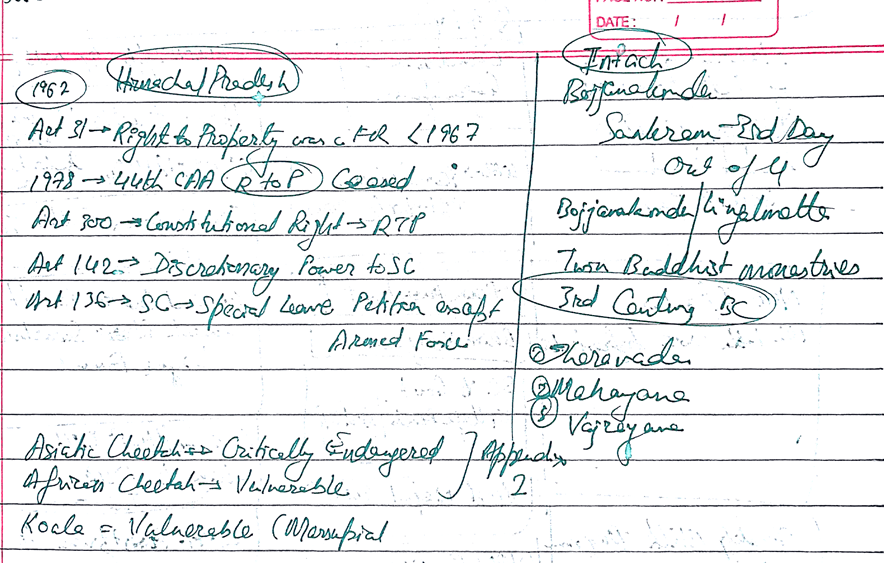 DATE: / /
1962 Himachal Pradesh
Art 31 → Right to Property was a FR < 1967
1978 → 44th CAA R to P Ceased
Art 300 → Constitutional Right → RTP
Art 142 → Discretionary Power to SC
Art 136 → SC → Special Leave Petition except
Armed Force
Asiatic Cheetah → Critically Endangered
African Cheetah → Vulnerable
Appendix
2
Koala = Vulnerable (Marsupial
Intach
Bojjanakonda
Sankram - 3rd Day
Out of 4
Bojjanakonda/Lingalmetta
Twin Buddhist monastries
3rd Century BC
① Theravada
② Mahayana
③ Vajrayana